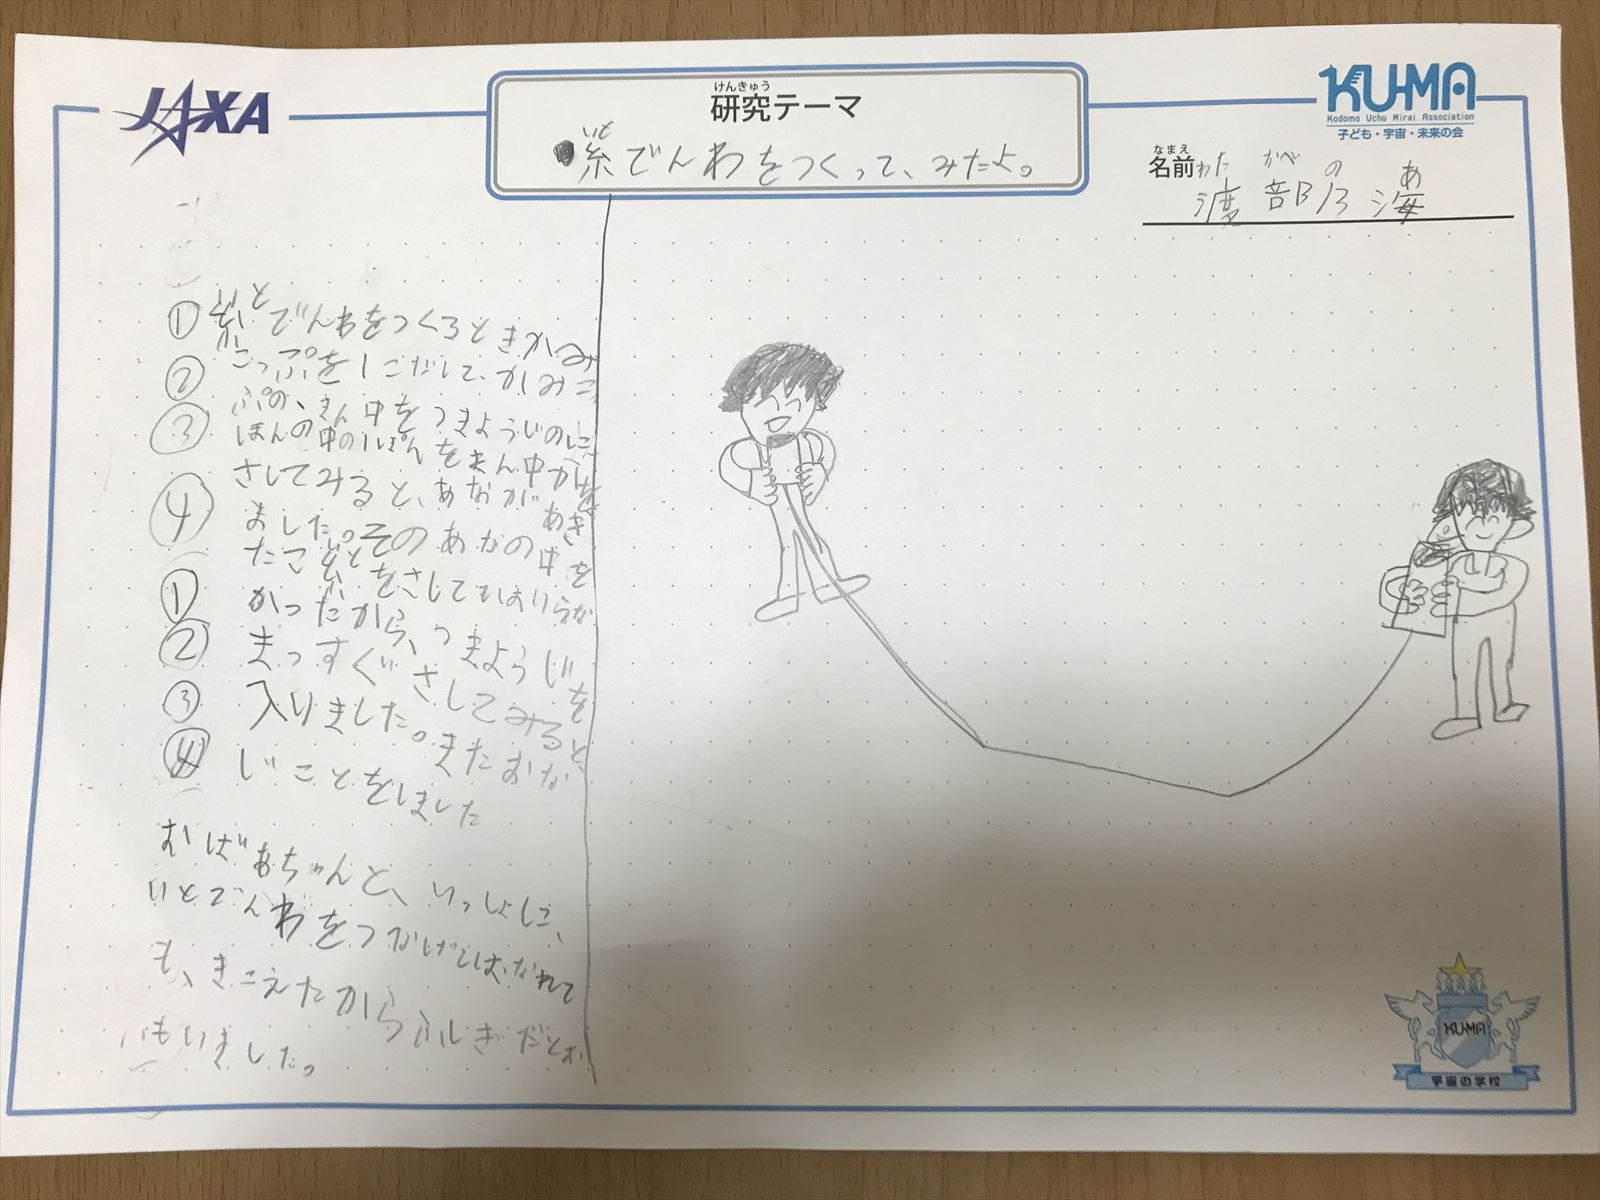 JAXA
けんきゅう
研究テーマ
いと
糸でんわをつくって、みたよ。
KU-MA
Kodomo Uchu Mirai Association
子ども・宇宙・未来の会
なまえ
名前
わた なべ の あ
渡部乃
① いと
糸でんわをつくるときかみ
② こっぷをしこだして、かみこっ
ぷの、まん中をつまようじの
③ ほんの中のいっぽんをまん中
さしてみると、あながあき
④ ました。そのあなの中を
たこ をさしてもはいらな
① かったから、つまようじを
② まっすぐさしてみると、
③ 入りました。またおな
④ じことをしました
おばあちゃんと、いっしょに、
いとでんわをつなげてはなれて
も、きこえたからふしぎだとお
もいました。
KU-MA
宇宙の学校